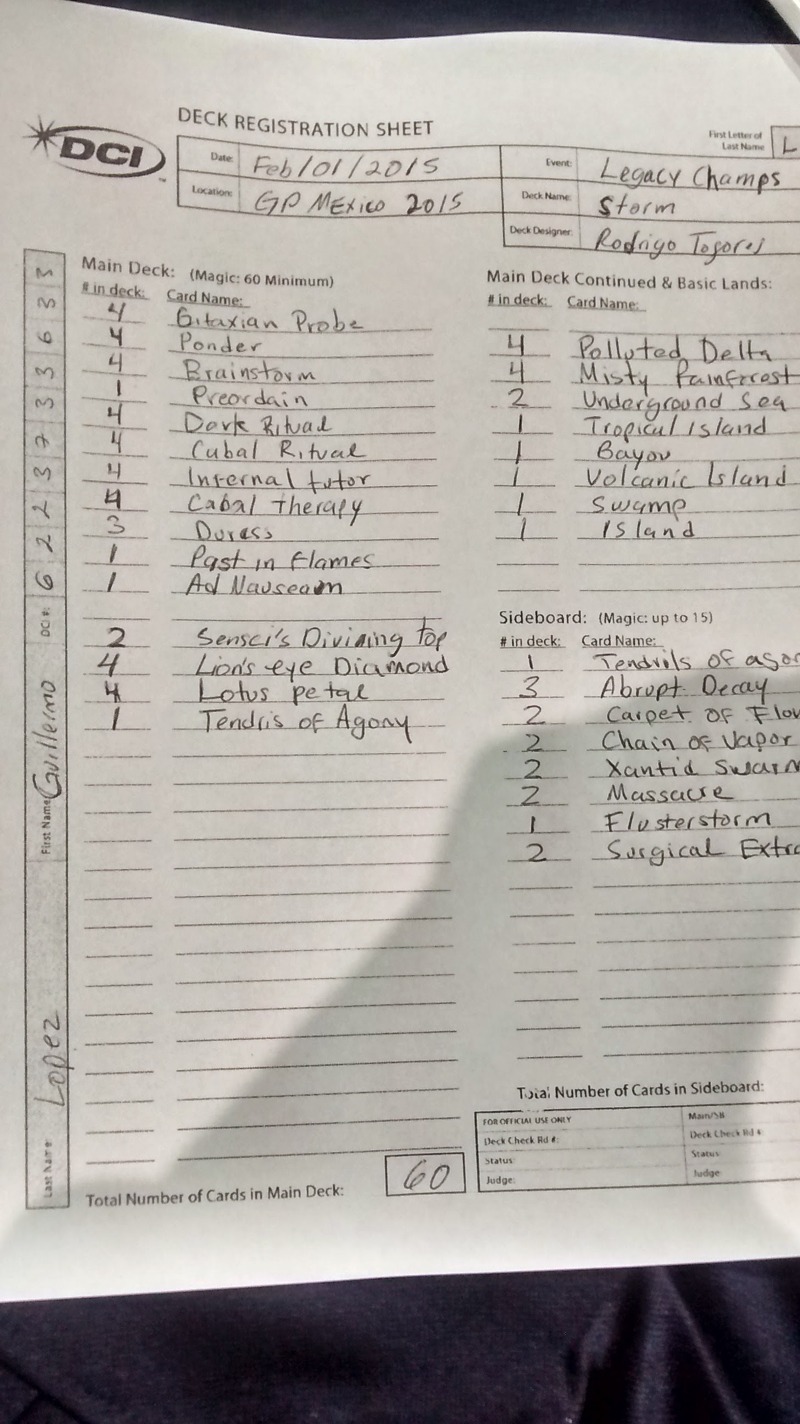 DECK REGISTRATION SHEET
DCI
First Letter of Last Name L
Date: Feb/01/2015
Location: GP MExico 2015
Event: Legacy Champs
Deck Name: Storm
Deck Designer: Rodrigo Togores
Main Deck: (Magic: 60 Minimum)
# in deck: Card Name:
4 Gitaxian Probe
4 Ponder
4 Brainstorm
1 Preordain
4 Dark Ritual
4 Cabal Ritual
4 Infernal tutor
4 Cabal Therapy
3 Duress
1 Past in Flames
1 Ad Nauseam
2 Sensei's Divining top
4 Lion's eye Diamond
4 Lotus petal
1 Tendris of Agony
Total Number of Cards in Main Deck: 60
Main Deck Continued & Basic Lands:
# in deck: Card Name:
4 Polluted Delta
4 Misty Rainforest
2 Underground Sea
1 Tropical Island
1 Bayou
1 Volcanic Island
1 Swamp
1 Island
Sideboard: (Magic: up to 15)
# in deck: Card Name:
1 Tendrils of agon
3 Abrupt Decay
2 Carpet of Flow
2 Chain of Vapor
2 Xantid Swarm
2 Massacre
1 Flusterstorm
2 Surgical Extra
Total Number of Cards in Sideboard:
FOR OFFICIAL USE ONLY
Main/SB
Deck Check Rd #:
Deck Check Rd #
Status:
Status:
Judge:
Judge:
Last Name Lopez First Name Guillermo DCI #: 6 2 2 3 7 3 3 6 3 3